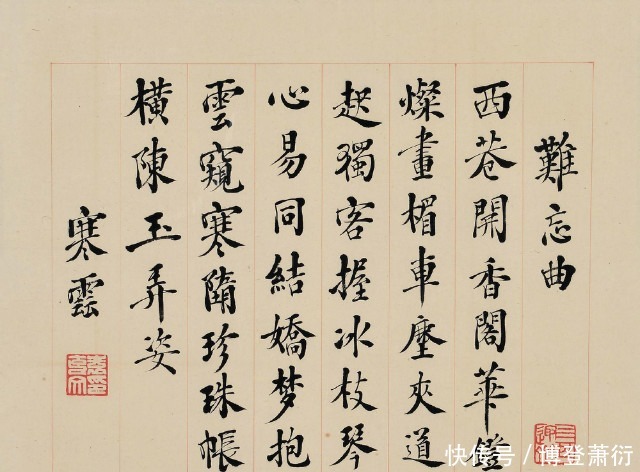 難忘曲
西巷開香閣華鐙
燦畫楣車塵夾道
起獨客握冰枝琴
心易同結嬌梦抱
雲窺寒隋珍珠帳
橫陳玉弄姿
寒雲
快传号/博登萧衍